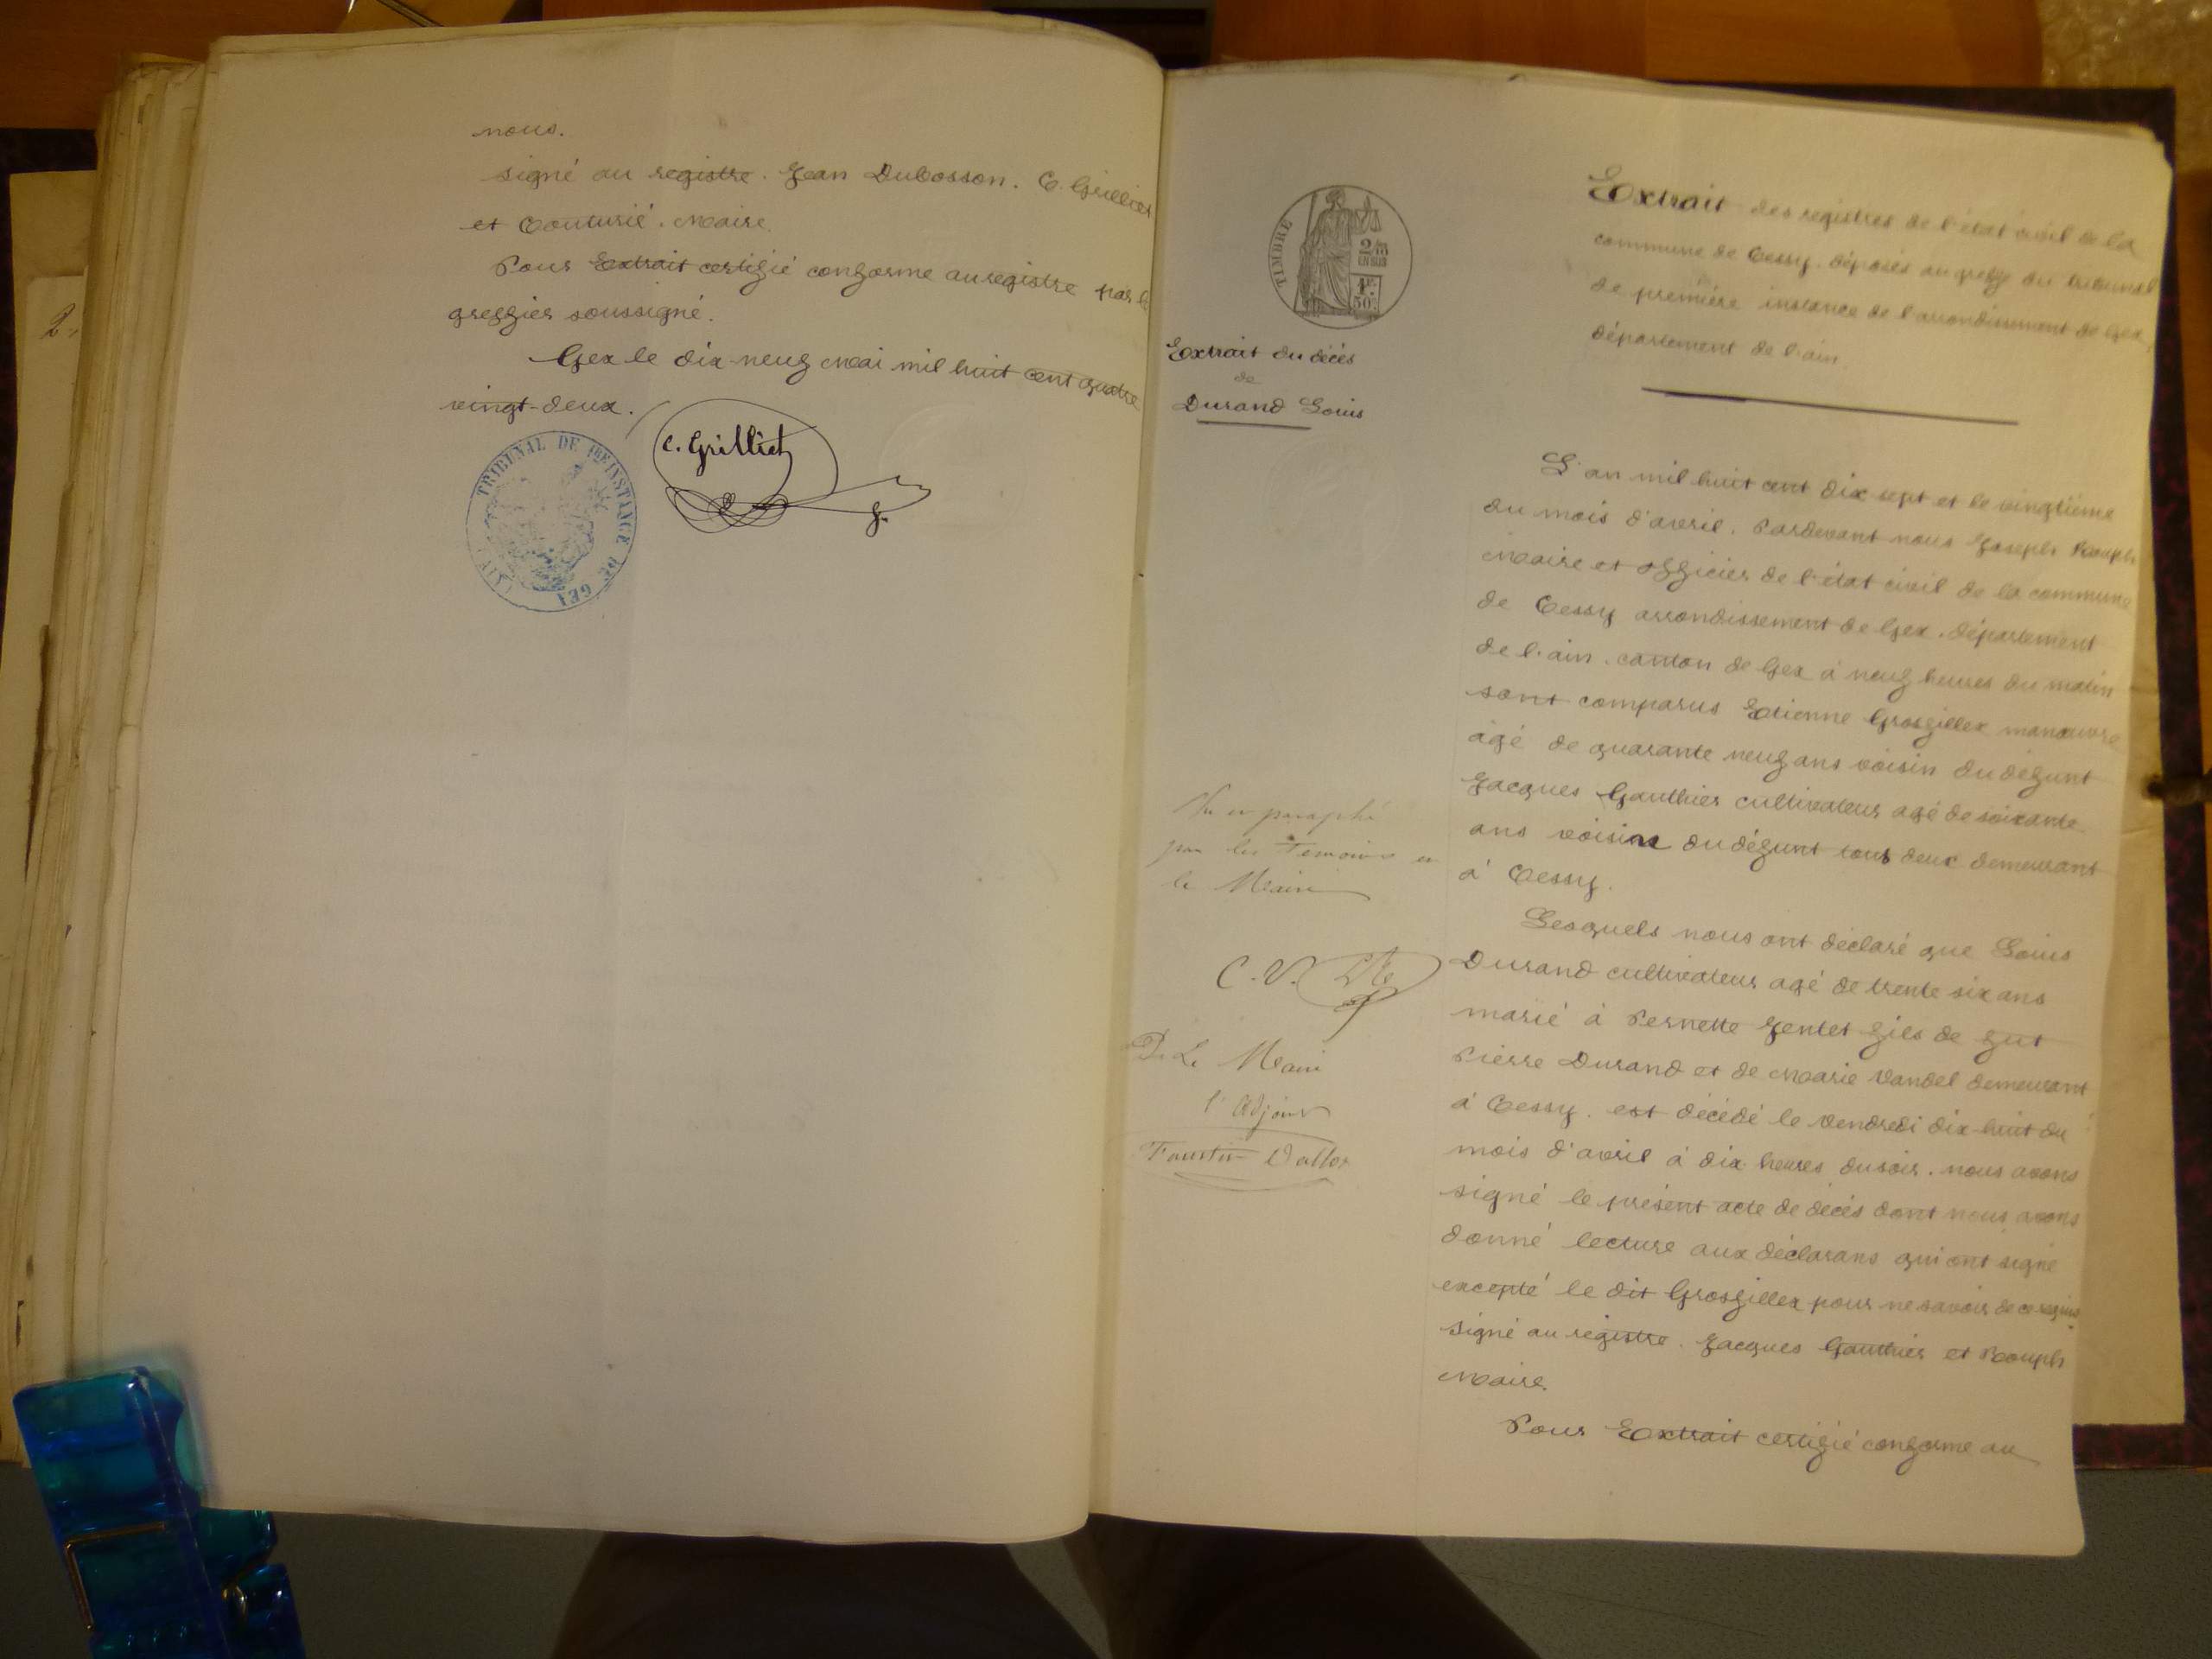 nous.
signé au registre. Jean Dubosson. C. Grilliet
et Couturié. Maire.
Pour Extrait certifié conforme au registre par le
greffier soussigné.
Gex le dix-neuf Mai mil huit cent quatre
vingt-deux.
C. Grilliet
TRIBUNAL DE 1RE INSTANCE DE GEX
2.
TIMBRE
2/10
EN SUS
1F.
50C.
Extrait du décès
de
Durand Louis
Vu et paraphé
par les Temoins et
le Maire
C. V.
Pr Le Maire
l'Adjoint
Extrait des registres de l'état civil de la
commune de Cessy. déposés au greffe du tribunal
de première instance de l'arrondissement de Gex,
département de l'ain.
L'an mil huit cent dix sept et le vingtième
du mois d'avril. Pardevant nous Joseph Rouph
Maire et officier de l'état civil de la commune
de Cessy arrondissement de Gex. département
de l'ain. canton de Gex à neuf heures du matin
sont comparus Etienne Grosfillex manœuvre
agé de quarante neuf ans voisin du défunt
Jacques Gauthier cultivateur agé de soixante
ans voisin du défunt tous deux demeurant
à Cessy.
Lesquels nous ont déclaré que Louis
Durand cultivateur agé de trente six ans
marié à Pernette Jentet fils de fut
Pierre Durand et de Marie Vandel demeurant
à Cessy. est décédé le Vendredi dix-huit du
mois d'avril à dix heures du soir. nous avons
signé le présent acte de décès dont nous avons
donné lecture aux déclarans qui ont signé
excepté le dit Grosfillex pour ne savoir de ce requis
signé au registre. Jacques Gauthier et Rouph
Maire.
Pour Extrait certifié conforme au